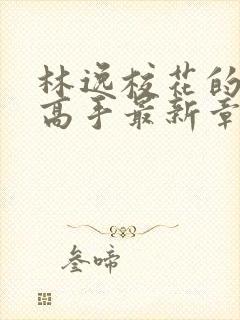 林逸校花的
高手最新章
叁啼